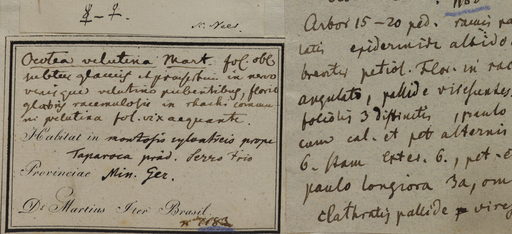 Ocotea velutina Mart. fol. obl.
subtus glaucis et praesertim in nervo
venisque velutino pubentibus, florib
glabris racemulosis in rhachi commu
ni velutina fol. vix aequante.
Habitat in montosis sylvaticis prope
Taparoca praed. Serro Frio
Provinciae Min. Ger.
Dr. Martius Iter Brasil.
n° 1083
Arbor 15-20 ped. ramis pa
latis epidermide albido
breviter petiol. Flor. in rac
angulato, pallide virescentes.
foliolis 3 distinctis, paulo
cum cal. et pet alternis
6. Stam exter. 6., pet-
paulo longiora 3a, om
clathratis pallide vires